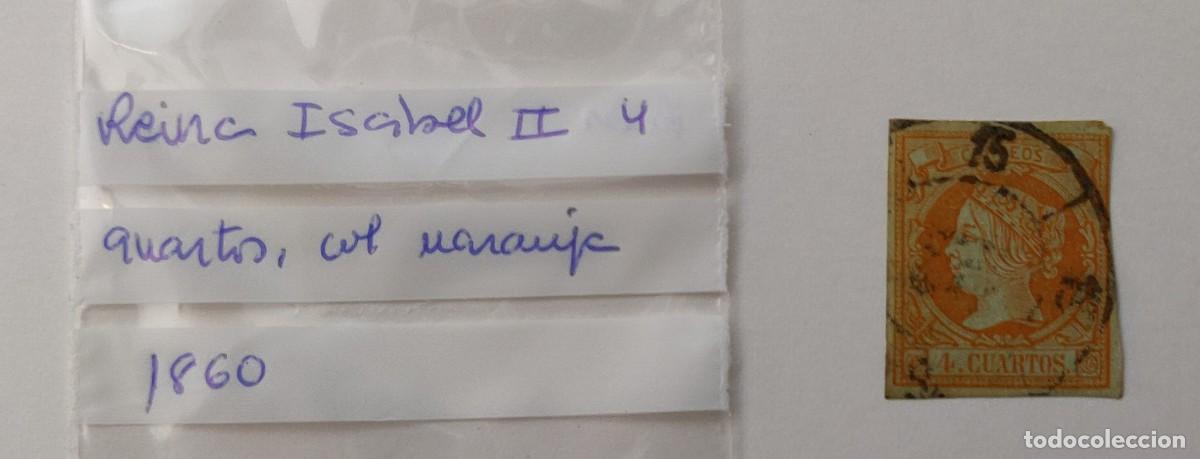 Reina Isabel II 4
quartos, col naranja
1860
15
CORREOS
4. CUARTOS.
todocoleccion